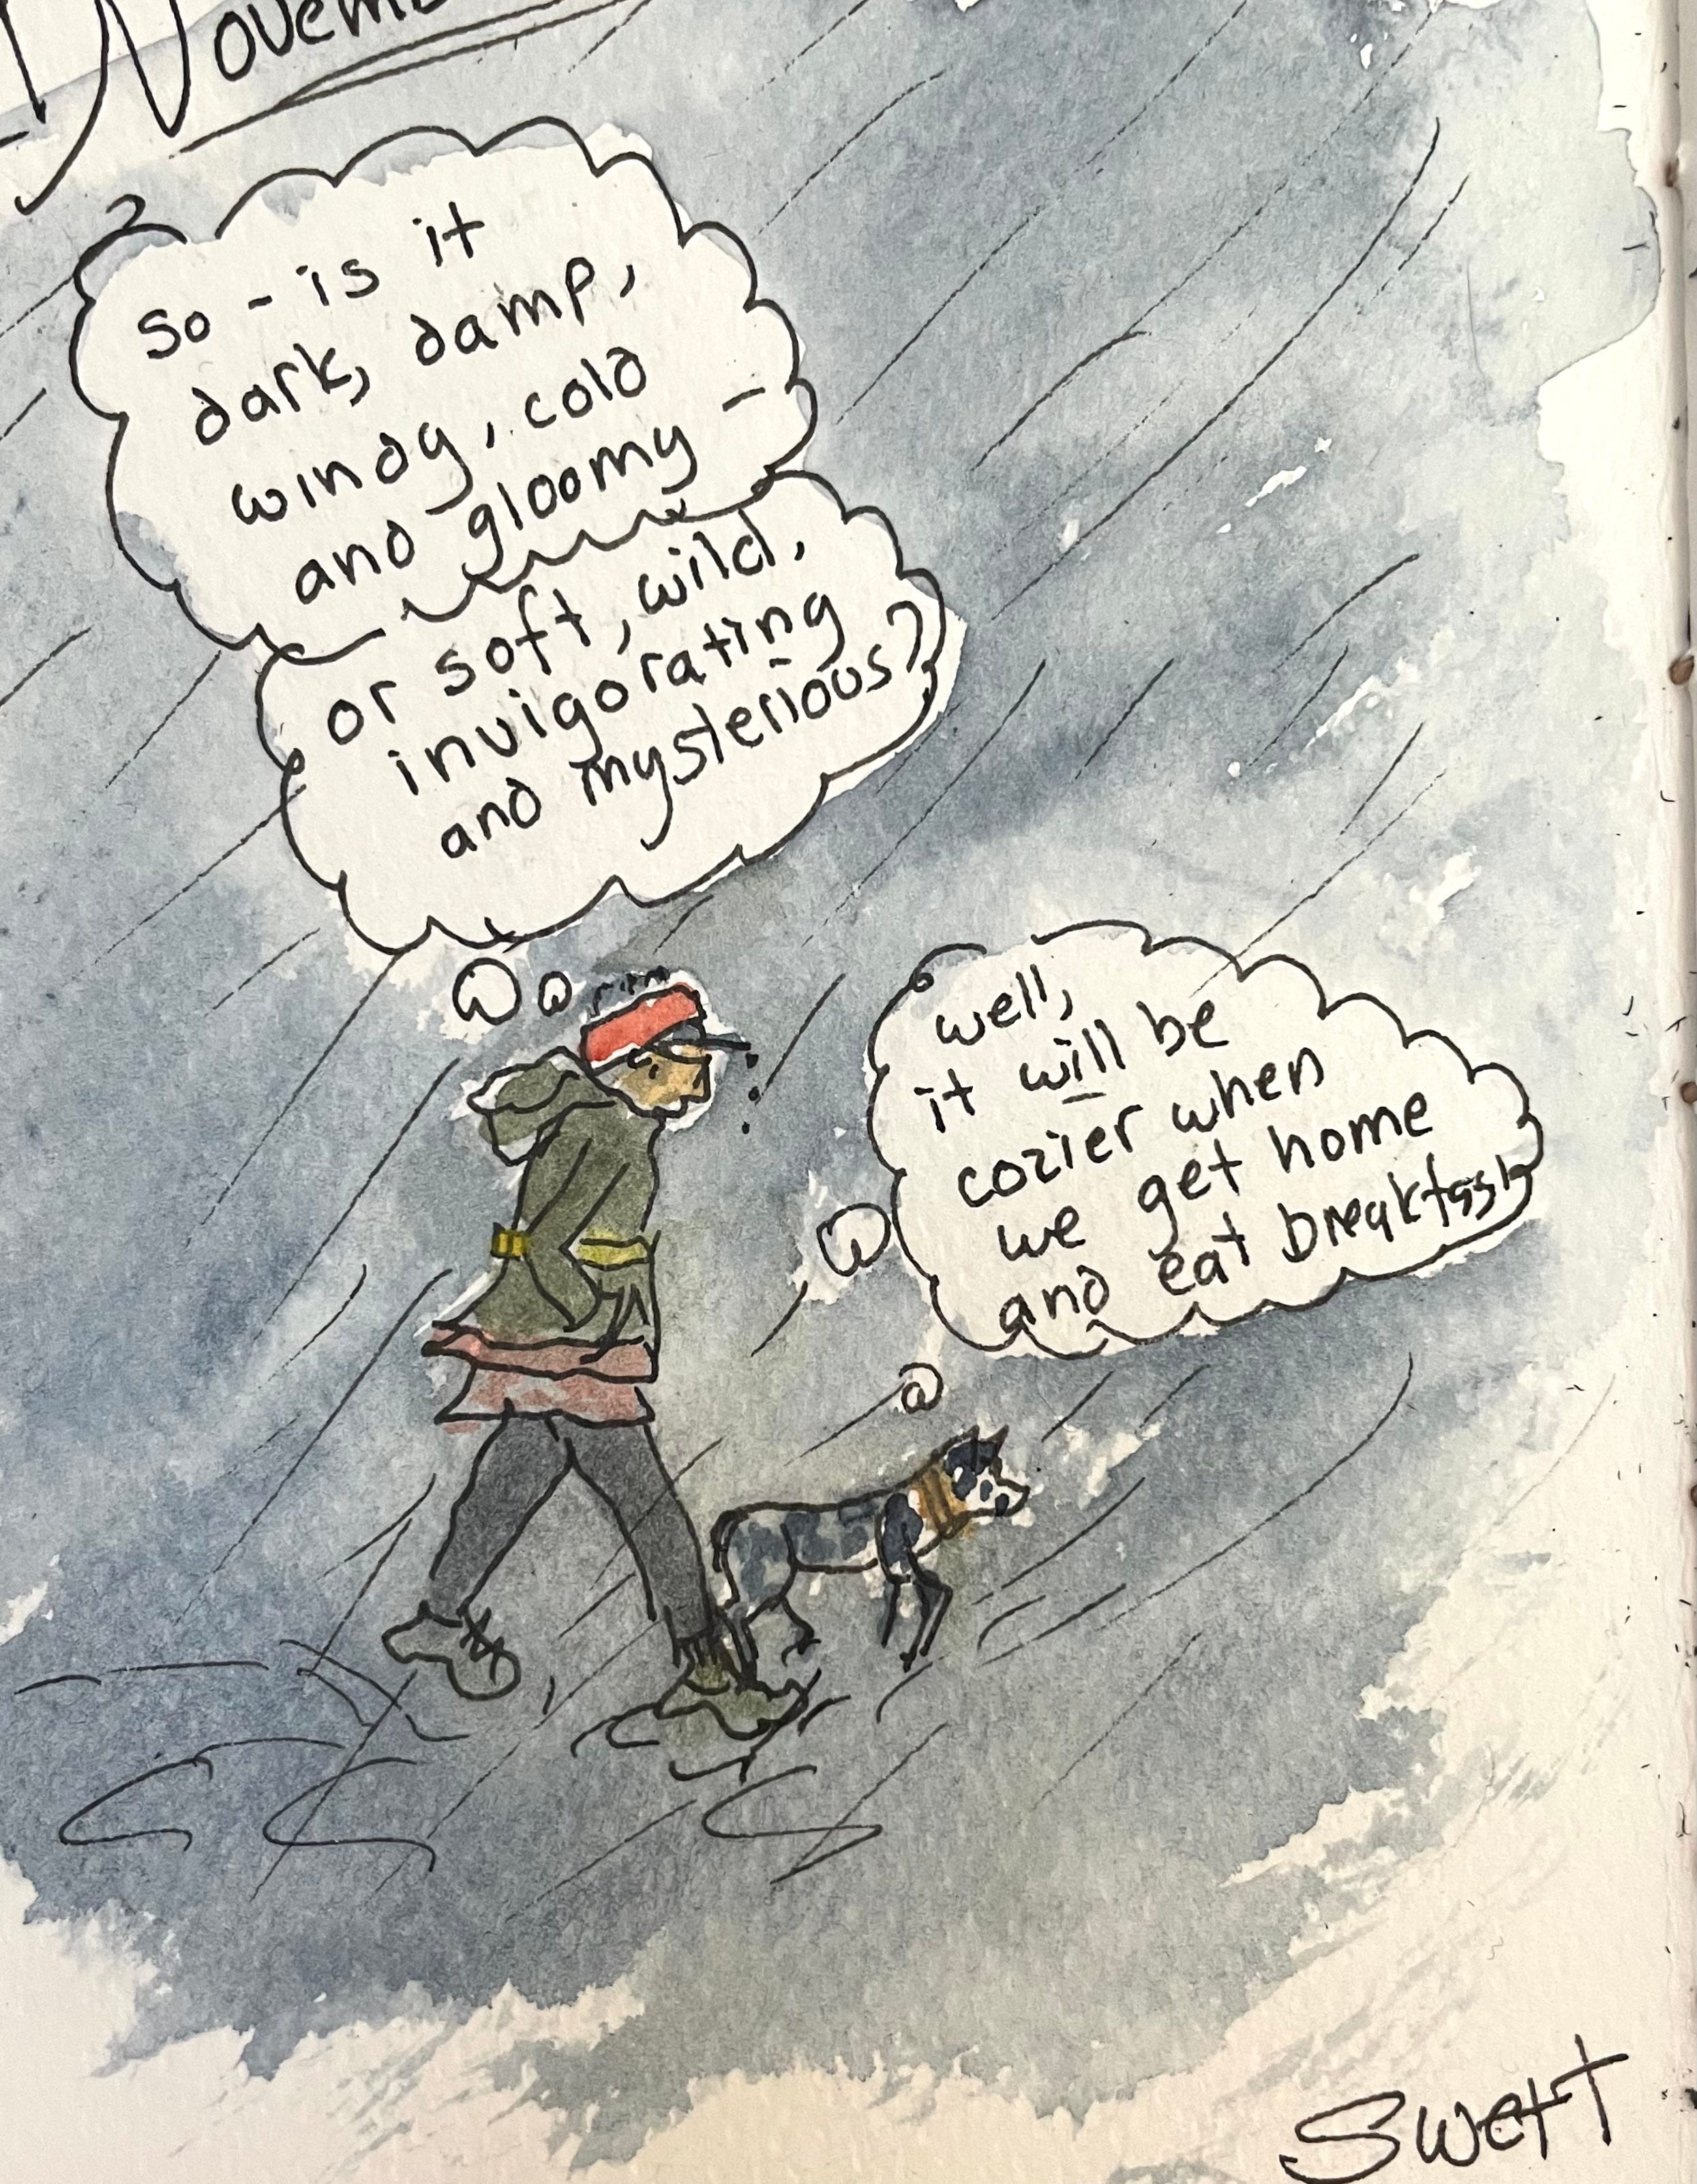 Novem
So - is it
dark, damp,
windy, cold
and gloomy -
or soft, wild,
invigorating
and mysterious?
well,
it will be
cozier when
we get home
and eat breakfast
Swett